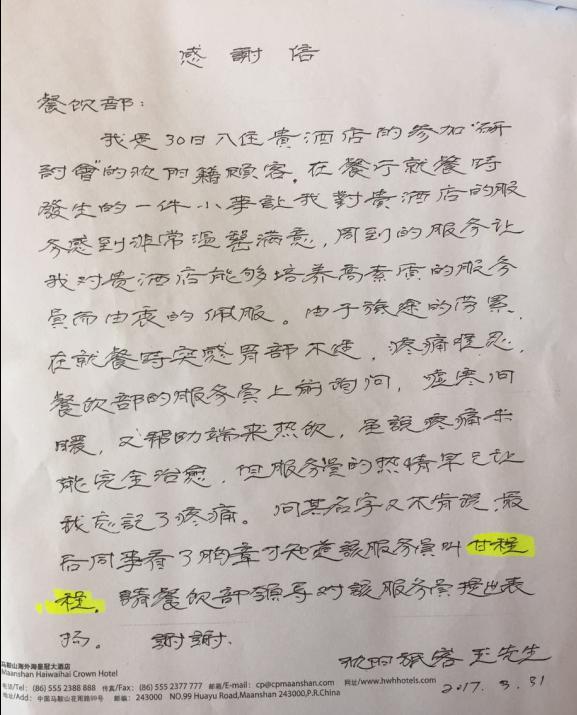 感謝信
餐饮部：
我是30日入住貴酒店的参加“研
討會”的欧洲籍顾客，在餐厅就餐時
發生的一件小事让我對贵酒店的服
务感到非常温馨满意，周到的服务让
我对贵酒店能够培养高素质的服务
員而由衷的佩服。由于旅途的劳累，
在就餐時突感胃部不适，疼痛难忍，
餐饮部的服务员上前询问，嘘寒问
暖，又帮助端来热饮，虽說疼痛未
能完全治愈，但服务員的热情早已让
我忘記了疼痛。问其名字又不肯说，最
后同事看了胸章才知道該服务员叫甘程
程，請餐饮部领导对該服务员提出表
扬。 謝謝.
王先生
2017.3.31
马鞍山海外海皇冠大酒店
Maanshan Haiwaihai Crown Hotel
电话/Tel: (86) 555 2388 888 传真/Fax: (86) 555 2377 777 邮箱/E-mail: cp@cpmaanshan.com 网址/www.hwhhotels.com
地址/Add: 中国马鞍山花雨路99号 邮编: 243000 NO.99 Huayu Road,Maanshan 243000,P.R.China